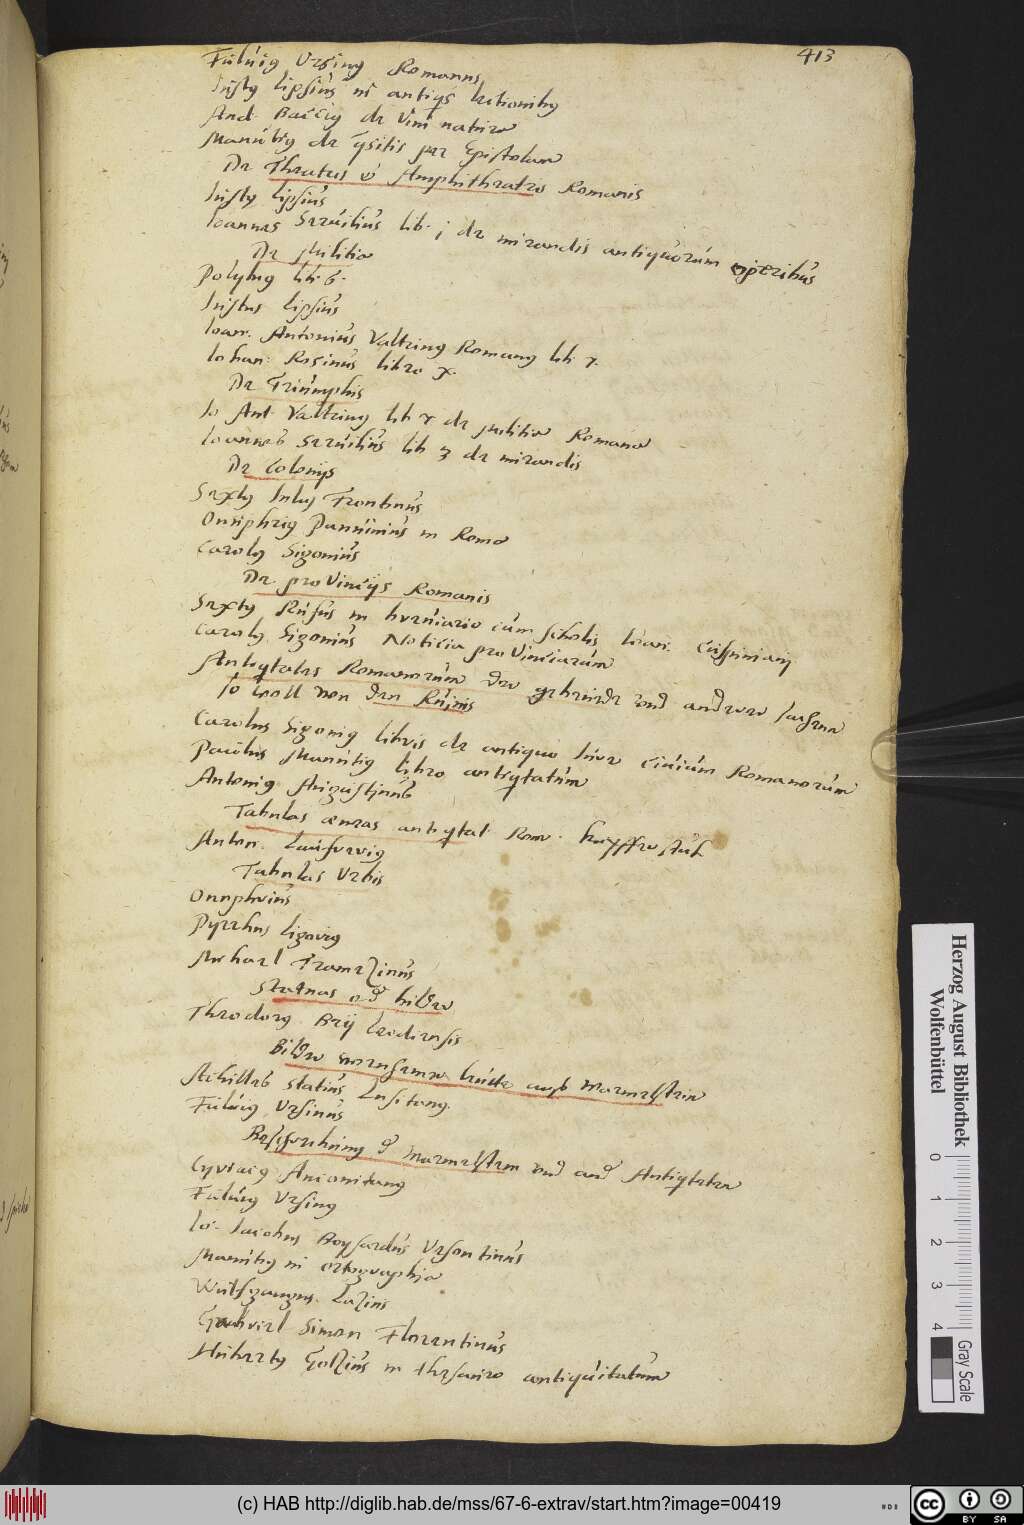 413
Fúluiꝯ Vrsinꝯ Romanus
Iustꝯ lipsiús in antiqs lectionibꝯ
And. Bacciꝯ de vini natura
Manútiꝯ de per Epistolam
De Theatris Amphitheatro Romanis
Iustꝯ lipsiús
Ioannes Seruiliús lib. j de mirandis antiquorúm operibús
De Militia
Polybiꝯ lib. 6.
Iustus lipsiús
Ioan. Antoniús Valtrinꝯ Romanꝯ lib. 7.
Iohan: Rosinús libro x.
De Triúmphis
Io Ant. Valtrinꝯ lib 7 de Militia Romana
Ioannes Seruiliús lib 3 de mirandis
De Colonijs
Sextꝯ Iuliꝯ Frontinús
Onúphriꝯ Panúiniús in Roma
Carolꝯ Sigoniús
De provincijs Romanis
Sextꝯ Rúfús in breúiario cúm scholis Ioan: Cúspiniani
Carolꝯ Sigoniús Noticia provinciarúm
Antiqtates Romanorúm der gebeúde vnd anderer sachenn
Io von den Rúinis
Carolus Sigoniꝯ libris de antiquo Iúre ciuiúm Romanorúm
Paúlus Manútiꝯ libro antiqtatúm
Antoniꝯ Aúgústinús
Tabulas aeneas antiqtat. Rom. kupffer stúck
Anton. Lafreriꝯ
Tabulas Vrbis
Onuphriús
Pyrrhus ligoriꝯ
Michael Tramezinús
Statuas od bilder
Theodorꝯ Brij Leodiensis
Bilder vornehmer leúte auß Marmelstein
Achilles Statiús Lusitanꝯ.
Fúluiꝯ Vrsinús
Beschreibúng d Marmelstein vnd and Antiqteten
Cyriaciꝯ Anconitanꝯ
Fúluiꝯ Vrsinꝯ
Io. Iacobus Boysardús Vesontinús
Manútiꝯ in ortographia
Wolfgangus. Lazius
Gabriel Simon Florentinús
Húbertꝯ Golziús in thesauro antiqúitatúm
Herzog August Bibliothek
Wolfenbüttel
0 1 2 3 4
Gray Scale
(c) HAB http://diglib.hab.de/mss/67-6-extrav/start.htm?image=00419
cc BY SA